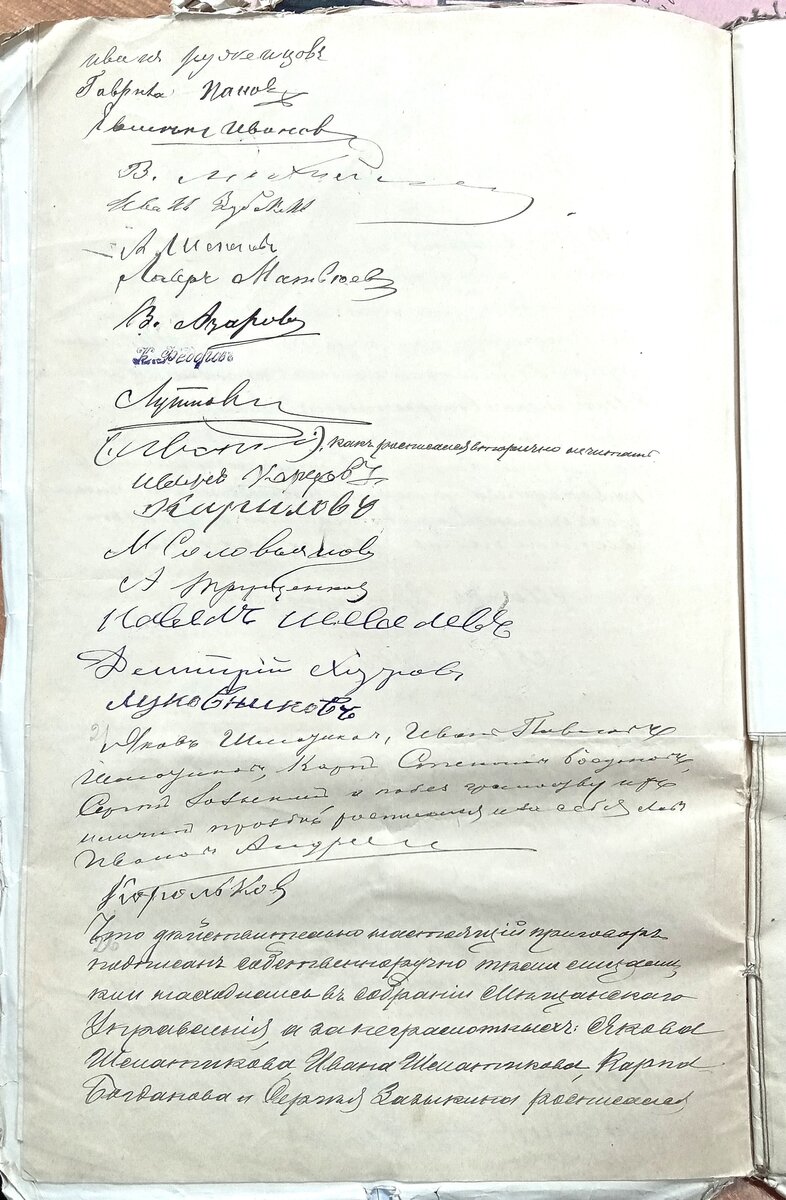 Иванъ Руженцовъ
Гаврила Пановъ
Ивановъ
В.
Иванъ Зубакинъ
А
Лаверъ Матвѣевъ
В. Азаровъ
К. Федоровъ
Лутков
(Иванъ), какъ росписался вторично не читать
Иванъ
Кириловъ
М Соловьяновъ
А Грищенковъ
Павелъ Шевелевъ
Дмитрій Хізровъ
Луковниковъ
21 Яковъ Шматиков, Иванъ Павловъ
Шматиков, Карпъ Степанов Богданов,
Сергѣй Завыкинъ а по безграмотству ихъ
и личной прозьбѣ росписался и за себя
Иванов Андрей
Корольков
Что действительно настоящій приговоръ
подписанъ собственноручно тѣми лицами,
кии находились въ собраніи Мѣщанскаго
Управленія, а за неграмотныхъ: Якова
Шематикова, Ивана Шематикова, Карпа
Богданова и Сергѣя Завыкина росписался,